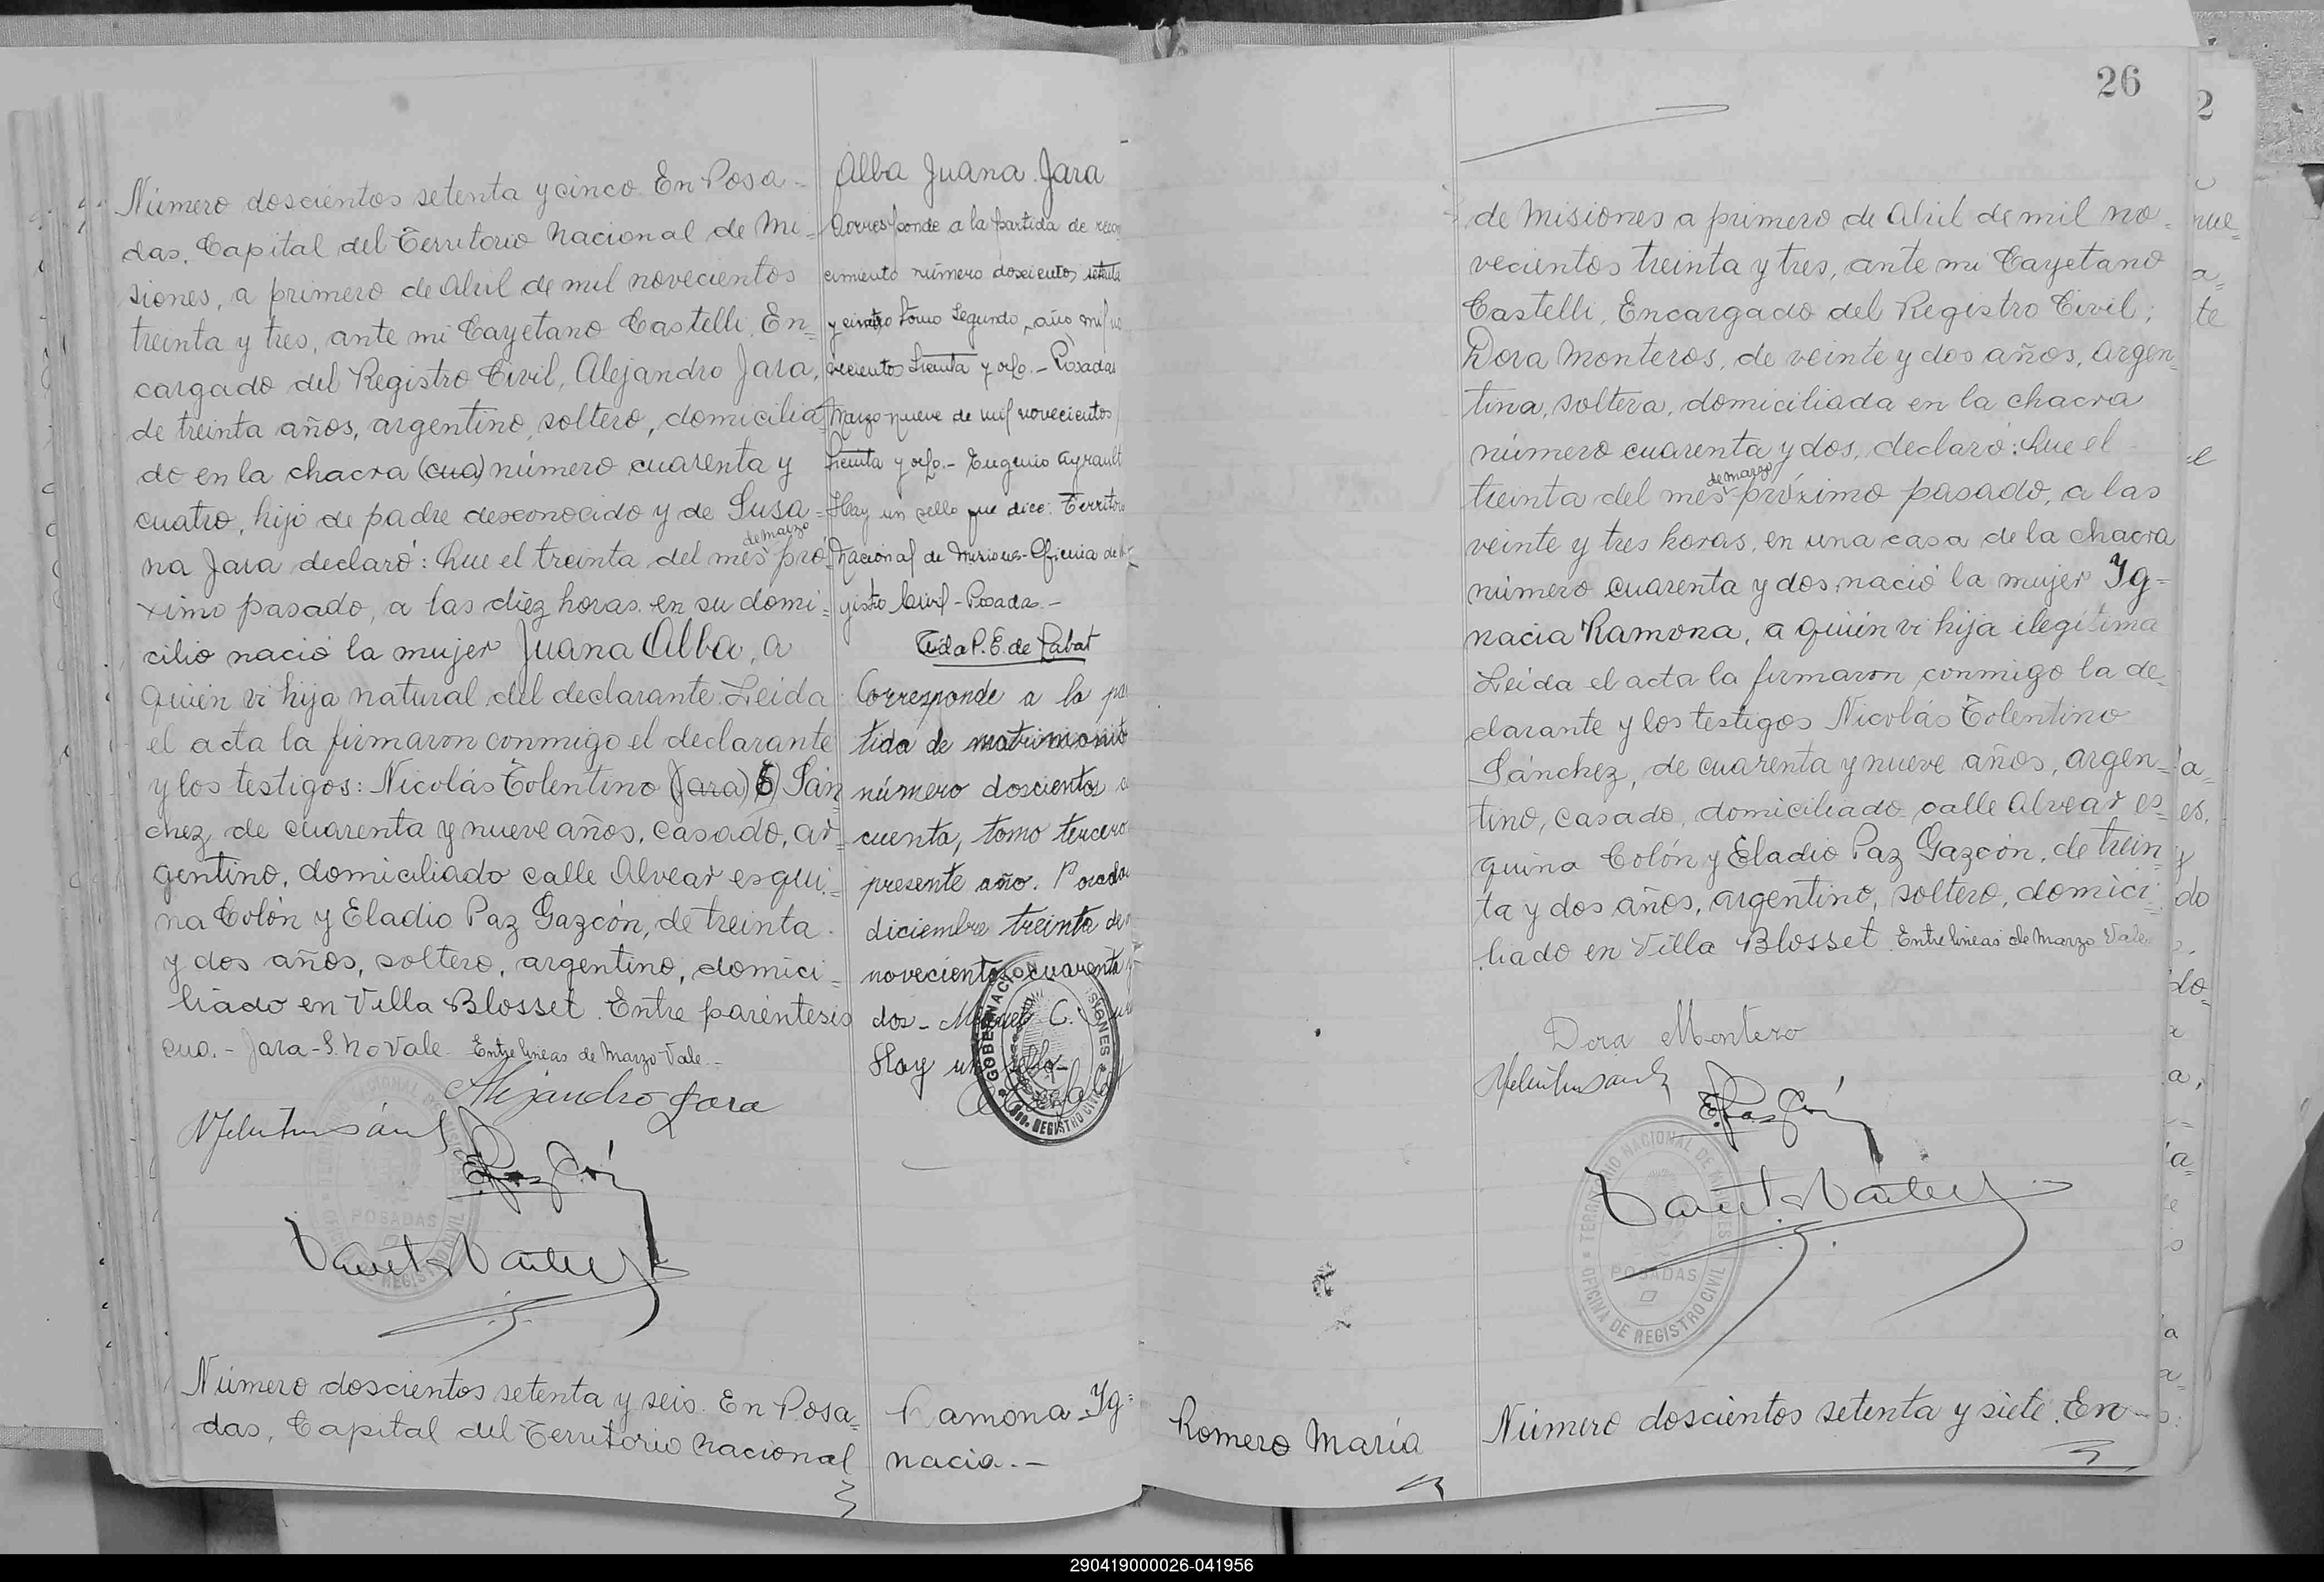 Número doscientos setenta y cinco. En Posa-
das, Capital del Territorio Nacional de Mi-
siones, a primero de Abril de mil novecientos
treinta y tres, ante mi Cayetano Castelli, En-
cargado del Registro Civil, Alejandro Jara,
de treinta años, argentino, soltero, domicilia-
do en la chacra (cua) número cuarenta y
cuatro, hijo de padre desconocido y de Susa-
de marzo
na Jara declaró: Que el treinta del mes pró-
ximo pasado, a las diez horas, en su domi-
cilio nació la mujer Juana Alba, a
quién vi hija natural del declarante. Leida
el acta la firmaron conmigo el declarante
y los testigos: Nicolás Tolentino (Jara) (S) Sán
chez, de cuarenta y nueve años, casado, ar-
gentino, domiciliado calle Alvear esqui-
na Colón y Eladio Paz Gazcón, de treinta
y dos años, soltero, argentino, domici-
liado en Villa Blosset. Entre paréntesis
cua.- Jara-S. no Vale. Entre lineas de Marzo-Vale.-
Alejandro Jara
POSADAS
Número doscientos setenta y seis. En Posa-
das, Capital del Territorio Nacional
Alba Juana Jara
Corresponde a la partida de recon
cimiento número doscientos setenta
y cinco Tomo Segundo, año mil no
vecientos treinta y ocho.- Posadas
Marzo nueve de mil novecientos
treinta y ocho.- Eugenio Ayrault
Hay un sello que dice: Territorio
Nacional de Misiones-Oficina de Re
gistro Civil-Posadas.-
P. E. de Labat
Corresponde a la par
tida de matrimonio
número doscientos
cuenta, tomo tercero
presente año. Posadas
diciembre treinta de
novecientos cuarenta y
dos.- Miguel C.
Hay un sello-
GOBERNACION MISIONES
REGISTRO CIVIL
Ramona Ig-
nacia.-
26
de Misiones a primero de Abril de mil no-
vecientos treinta y tres, ante mi Cayetano
Castelli, Encargado del Registro Civil;
Dora Monteros, de veinte y dos años, argen-
tina, soltera, domiciliada en la chacra
número cuarenta y dos, declaró: Que el
de marzo
treinta del mes próximo pasado, a las
veinte y tres horas, en una casa de la chacra
número cuarenta y dos, nació la mujer Ig-
nacia Ramona, a quién vi hija ilegítima
Leida el acta la firmaron conmigo la de-
clarante y los testigos Nicolás Tolentino
Sánchez, de cuarenta y nueve años, argen-
tino, casado, domiciliado calle Alvear es-
quina Colón y Eladio Paz Gazcón, de trein-
ta y dos años, argentino, soltero, domici-
liado en Villa Blosset. Entre lineas de Marzo Vale
Dora Montero
TERRITORIO NACIONAL DE MISIONES
POSADAS
OFICINA DE REGISTRO CIVIL
Romero María
Número doscientos setenta y siete. En-
290419000026-041956